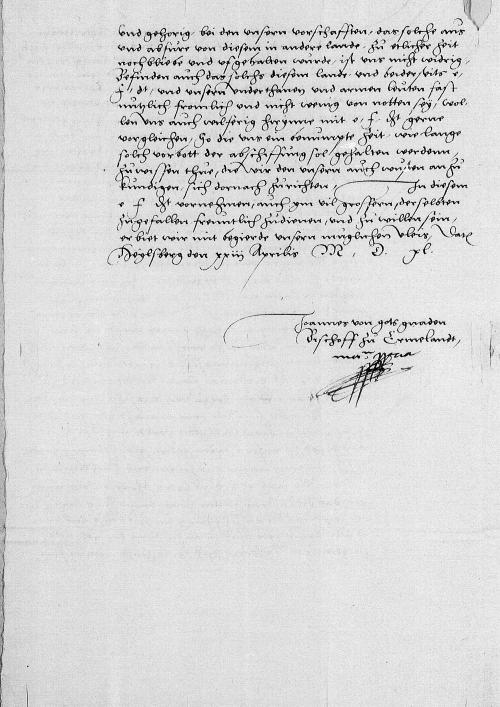 und gehorig, bei den unsern vorschafften, das solche aus
und abfure von diesem in andere lande, zu etlicher zeit
nochbliebe und ufgehalten wurde, ist uns nicht widrig,
Befinden auch das solchs diesem lande, und beiderseits e,
f, dt, und unsern underthanen und armen leuten fast
nutzlich fromlich und nicht wenig von notten sey, wol,,
len uns auch wilferig hirynne mit e, f, dt gerne
vorgleichen, So die uns ein benumpte zeit, wie lange
solch vorbott der abschiffung sol gehalten werdenn,
zuwissen thue, die wir den unsern auch wusten anzu
kundigen, sich dornach zurichten, In diesem
e f dt vornehmen, auch ym vil grossern, derselben
zugefallen freuntlich zudienen, und zu willen sein,
erbiet wir mit begierde unsern muglichen vleis, Datum
Heylsberg den xxiiii Aprilis M, D, xl,
Joannes von gots gnaden
Bischoff zu Ermelandt,
manu ppria